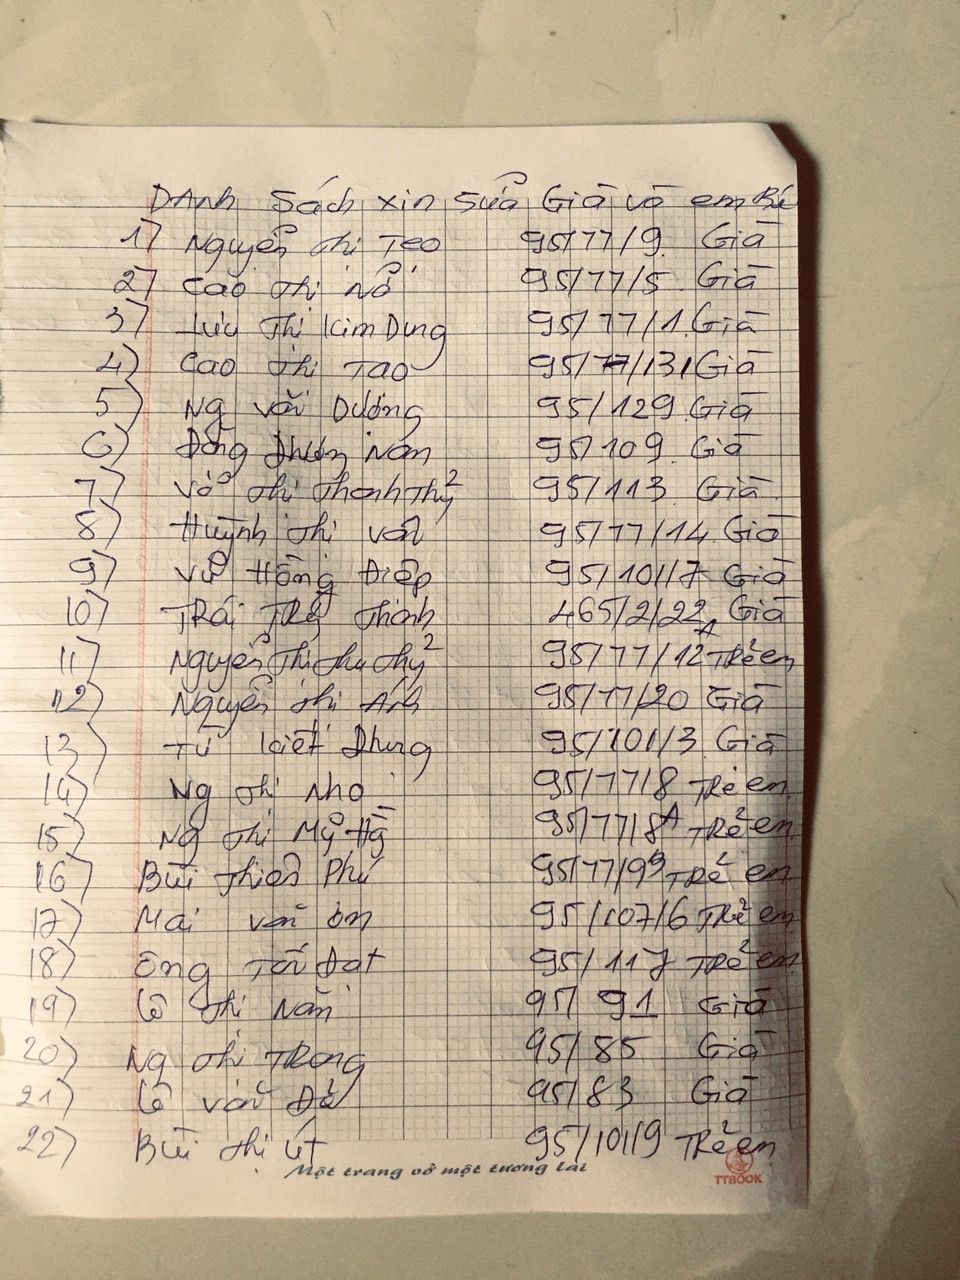 Danh Sách xin Sửa Già và em Bé
1) Nguyễn Thị Tèo 95/77/9 Già
2) Cao Thị Nổ 95/77/5 Già
3) Lưu Thị Kim Dung 95/77/1 Già
4) Cao Thị Tao 95/77/131 Già
5) Ng Văn Dương 95/129 Già
6) Năm 95/109 Già
7) Võ Thị Thanh Thuỷ 95/113 Già
8) Huỳnh Thị Vân 95/77/14 Già
9) Vũ Hồng Điệp 95/101/7 Già
10) Thành 465/2/22A Già
11) Nguyễn Thị Thu Thuỷ 95/77/12 Trẻ em
12) Nguyễn Thị Ánh 95/77/20 Già
13) Từ Kiết 95/101/3 Già
14) Ng Thị Nhỏ 95/77/8 Trẻ em
15) Ng Thị Mỹ Hà 95/77/8A Trẻ em
16) Bùi Thiên Phú 95/77/99 Trẻ em
17) Mai Văn Ơn 95/107/6 Trẻ em
18) Ông Tấn Đạt 95/117 Trẻ em
19) Lê Thị Năm 95/91 Già
20) Ng Thị Trong 95/85 Già
21) Lê Văn 95/83 Già
22) Bùi Thị Út 95/101/9 Trẻ em
Một trang vở một tương lai
TTBOOK